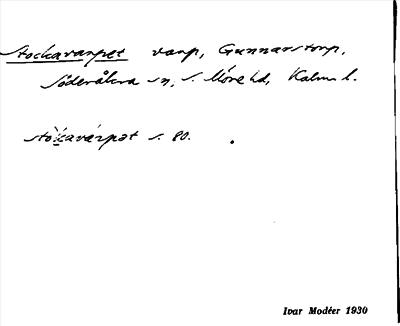 Stockavarpet varp, Gunnarstorp,
Söderåkra sn, S. Möre hd, Kalm. l.
stòkavárpət s. 80.
Ivar Modéer 1930